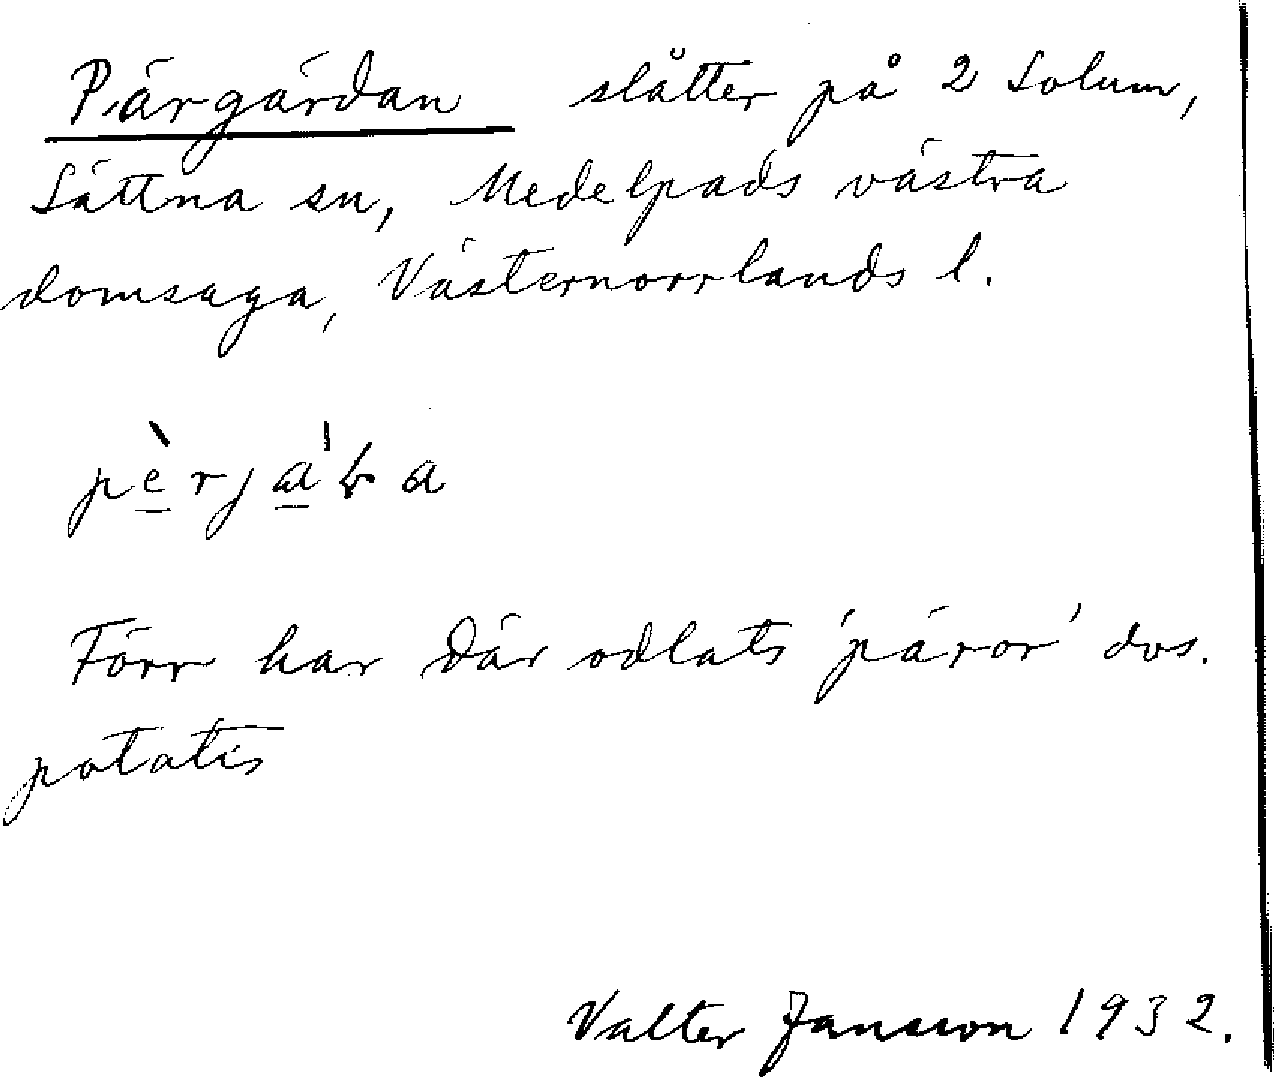 Pärgärdan slåtter på 2 Solum,
Sättna sn, Medelpads västra
domsaga, Västernorrlands l.
Förr har där odlats 'päror' dvs.
potatis
Valter Jansson 1932.